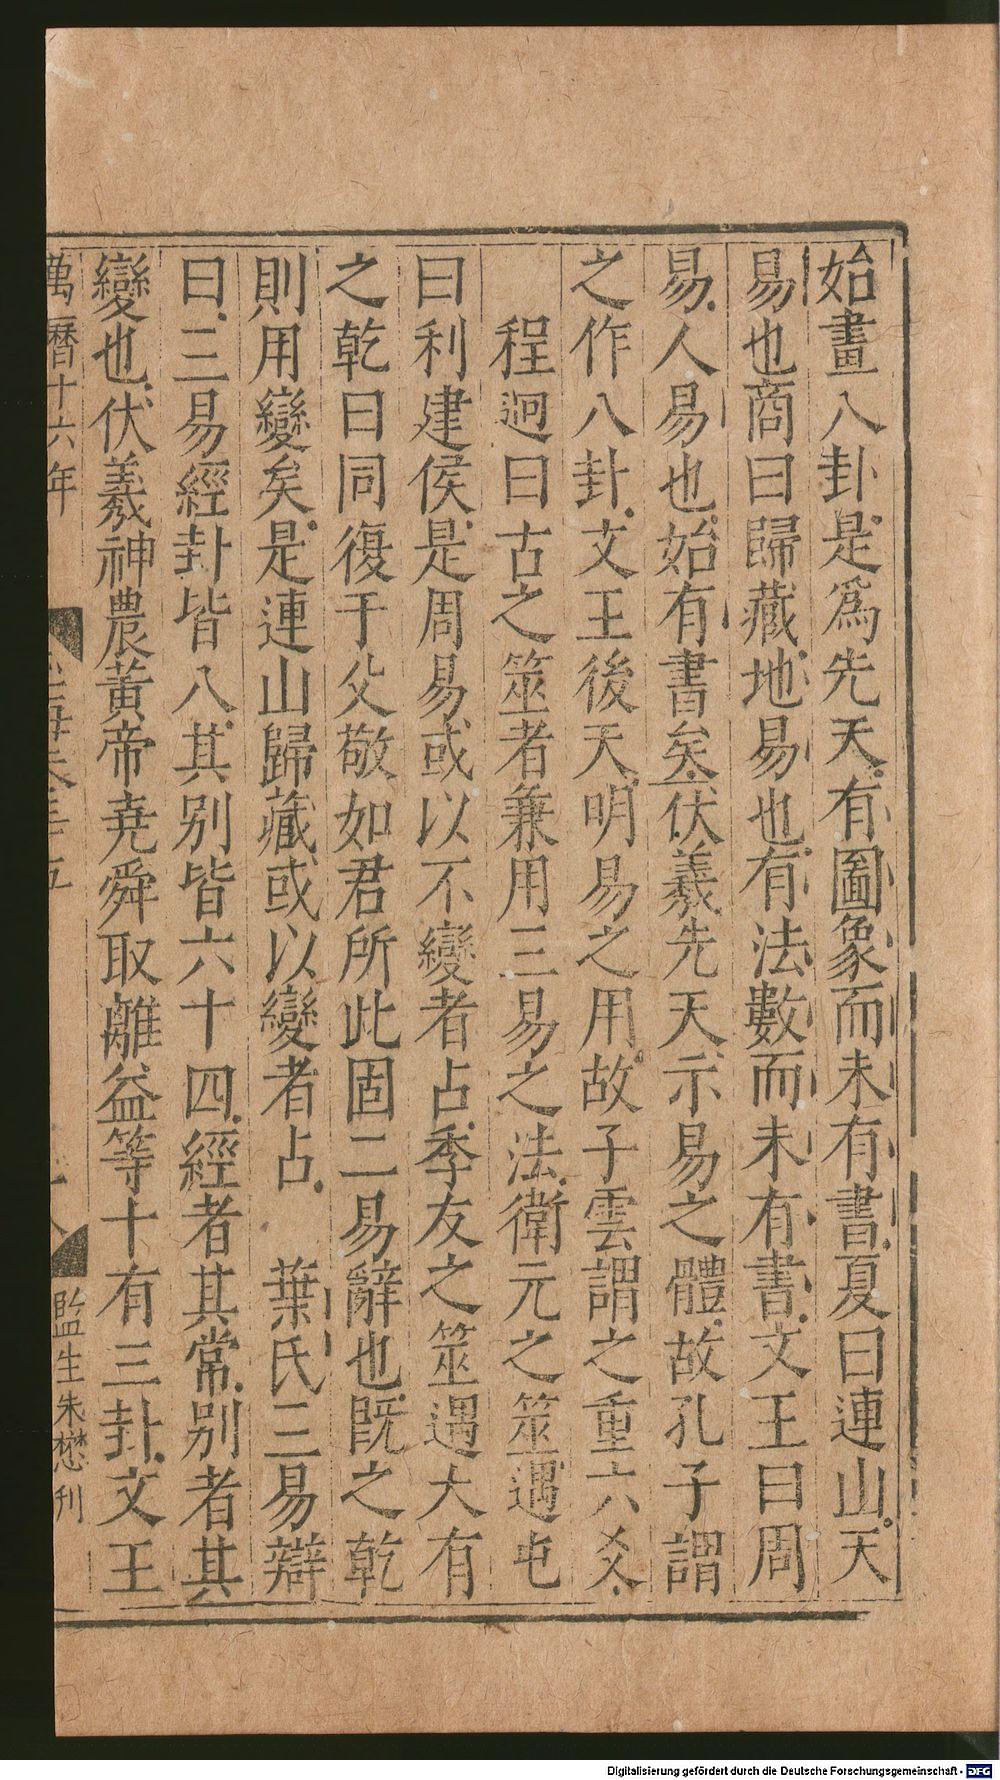 始畫八卦是爲先天有圖象而未有書夏曰連山天
易也商曰歸藏地易也有法數而未有書文王曰周
易人易也始有書矣伏羲先天示易之體故孔子謂
之作八卦文王後天明易之用故子雲謂之重六爻
程迥曰古之筮者兼用三易之法衛元之筮遇屯
曰利建侯是周易或以不變者占季友之筮遇大有
之乾曰同復于父敬如君所此固二易辭也既之乾
則用變矣是連山歸藏或以變者占　葉氏三易辯
曰三易經卦皆八其别皆六十四經者其常别者其
變也伏羲神農黄帝堯舜取離益等十有三卦文王
萬曆十六年
海卷三十五
監生朱懋刊
Digitalisierung gefördert durch die Deutsche Forschungsgemeinschaft - DFG